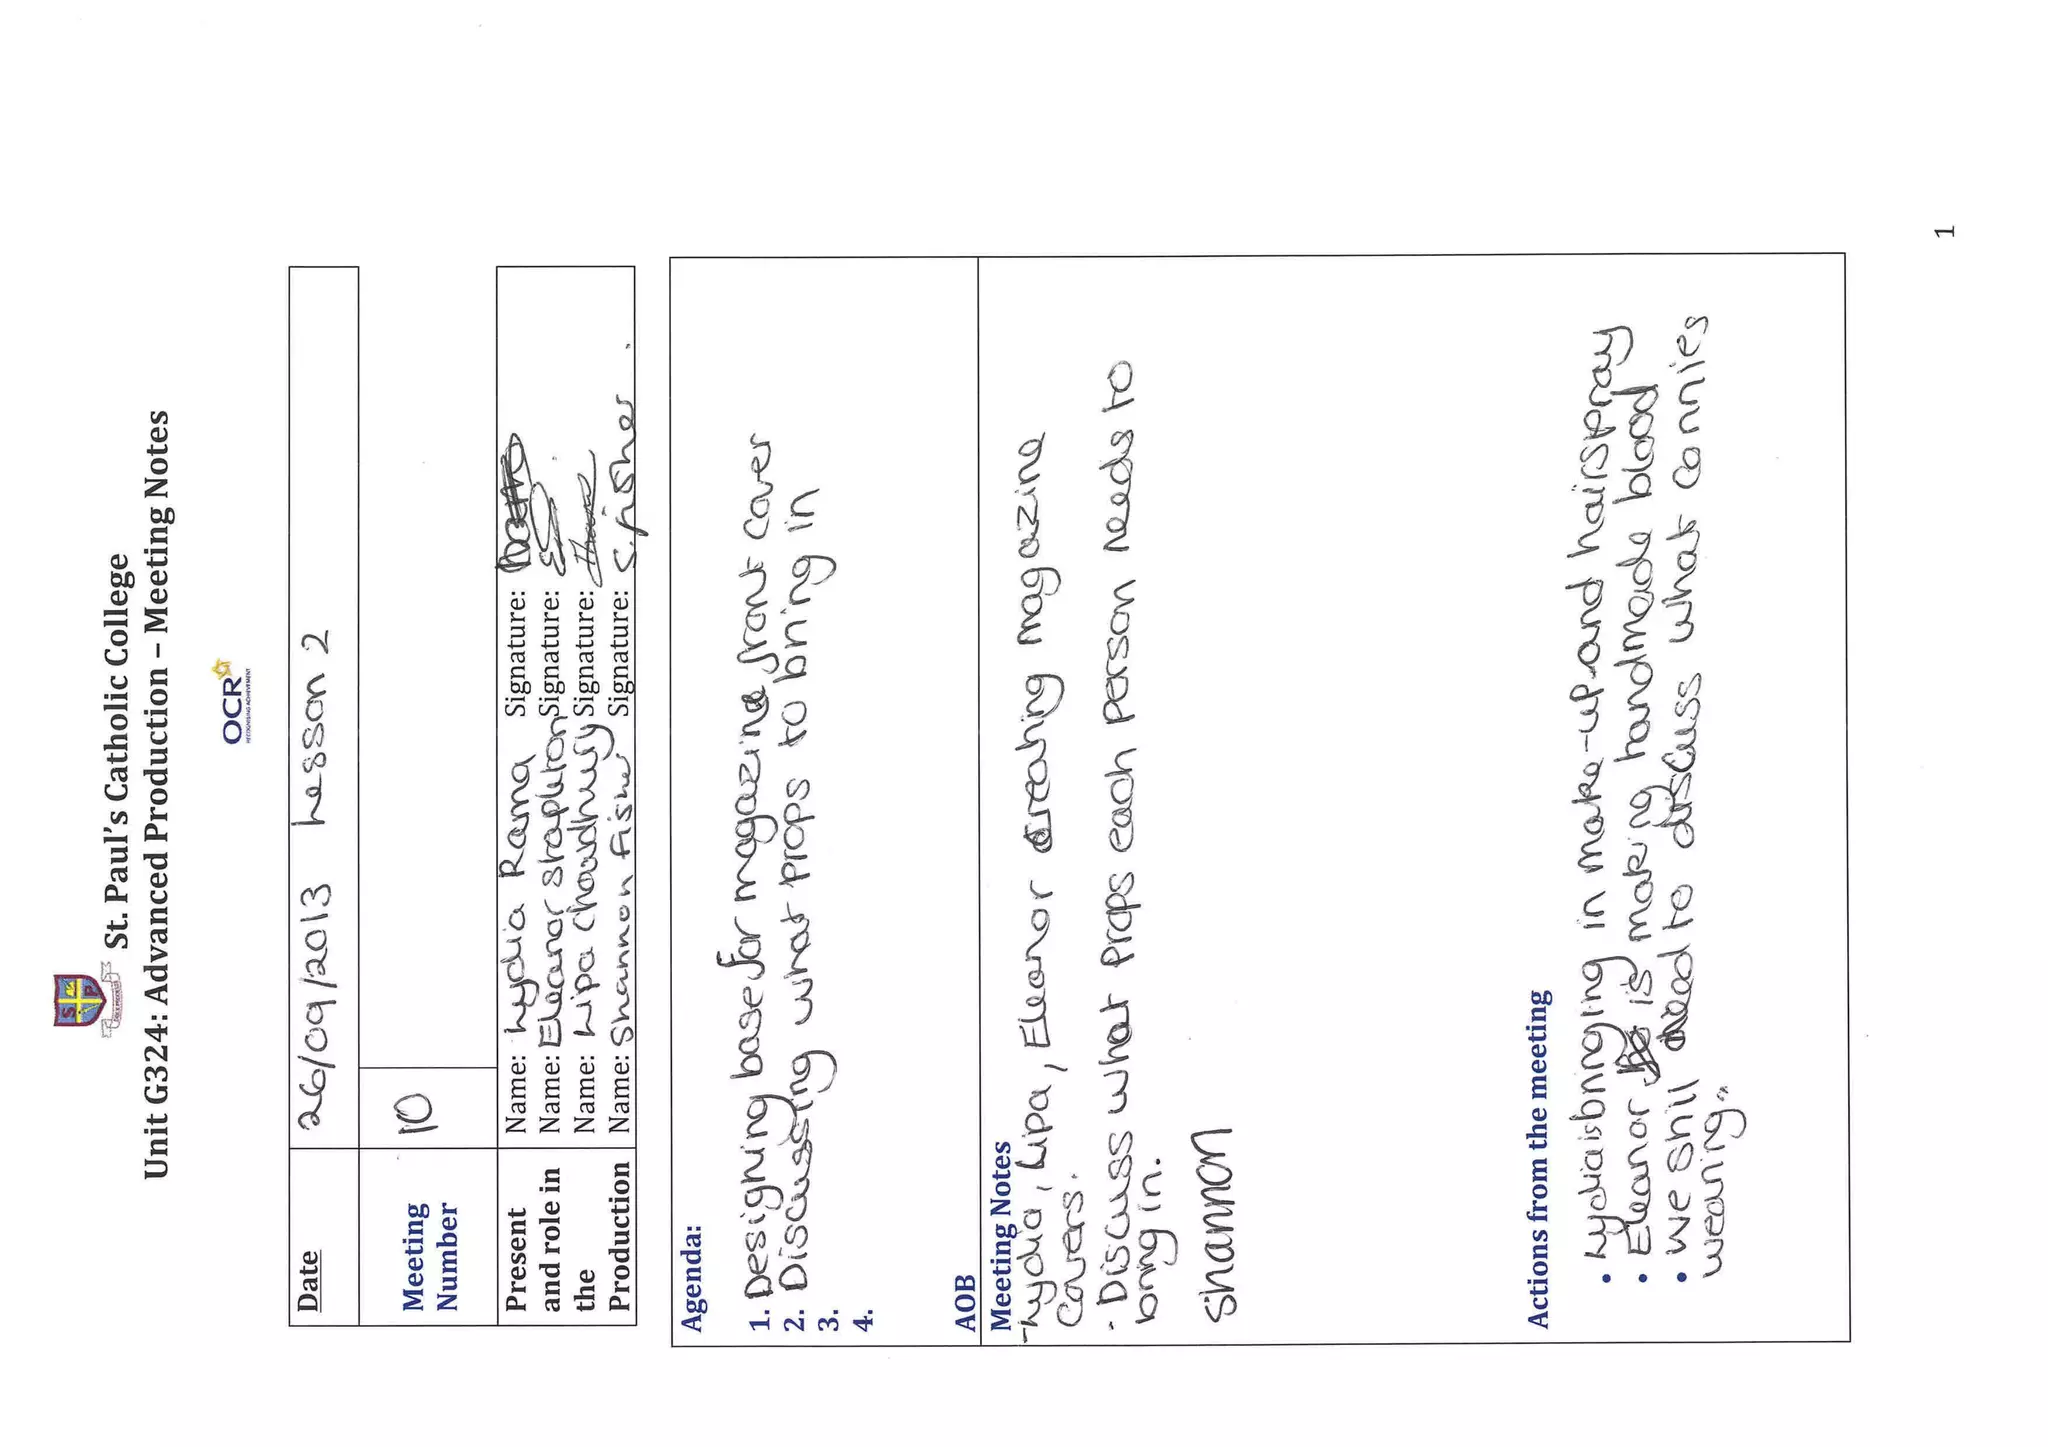 St. Paul's Catholic College
Unit G324: Advanced Production – Meeting Notes
OCR
RECOGNISING ACHIEVEMENT
Date 26/09/2013 Lesson 2
Meeting Number 10
Present and role in the Production
Name: Lydia Rama Signature:
Name: Eleanor Stapleton Signature:
Name: Lipa Choudhury Signature:
Name: Shannon Fisher Signature: S. Fisher
Agenda:
1. Designing base for magazine front cover
2. Discussing what props to bring in
3.
4.
AOB
Meeting Notes
- Lydia, Lipa, Eleanor creating magazine
covers.
· Discuss what props each person needs to
bring in.
Shannon
Actions from the meeting
• Lydia is bringing in make-up and hairspray
• Eleanor is making handmade blood
• We still need to discuss what connies
wearing.
1